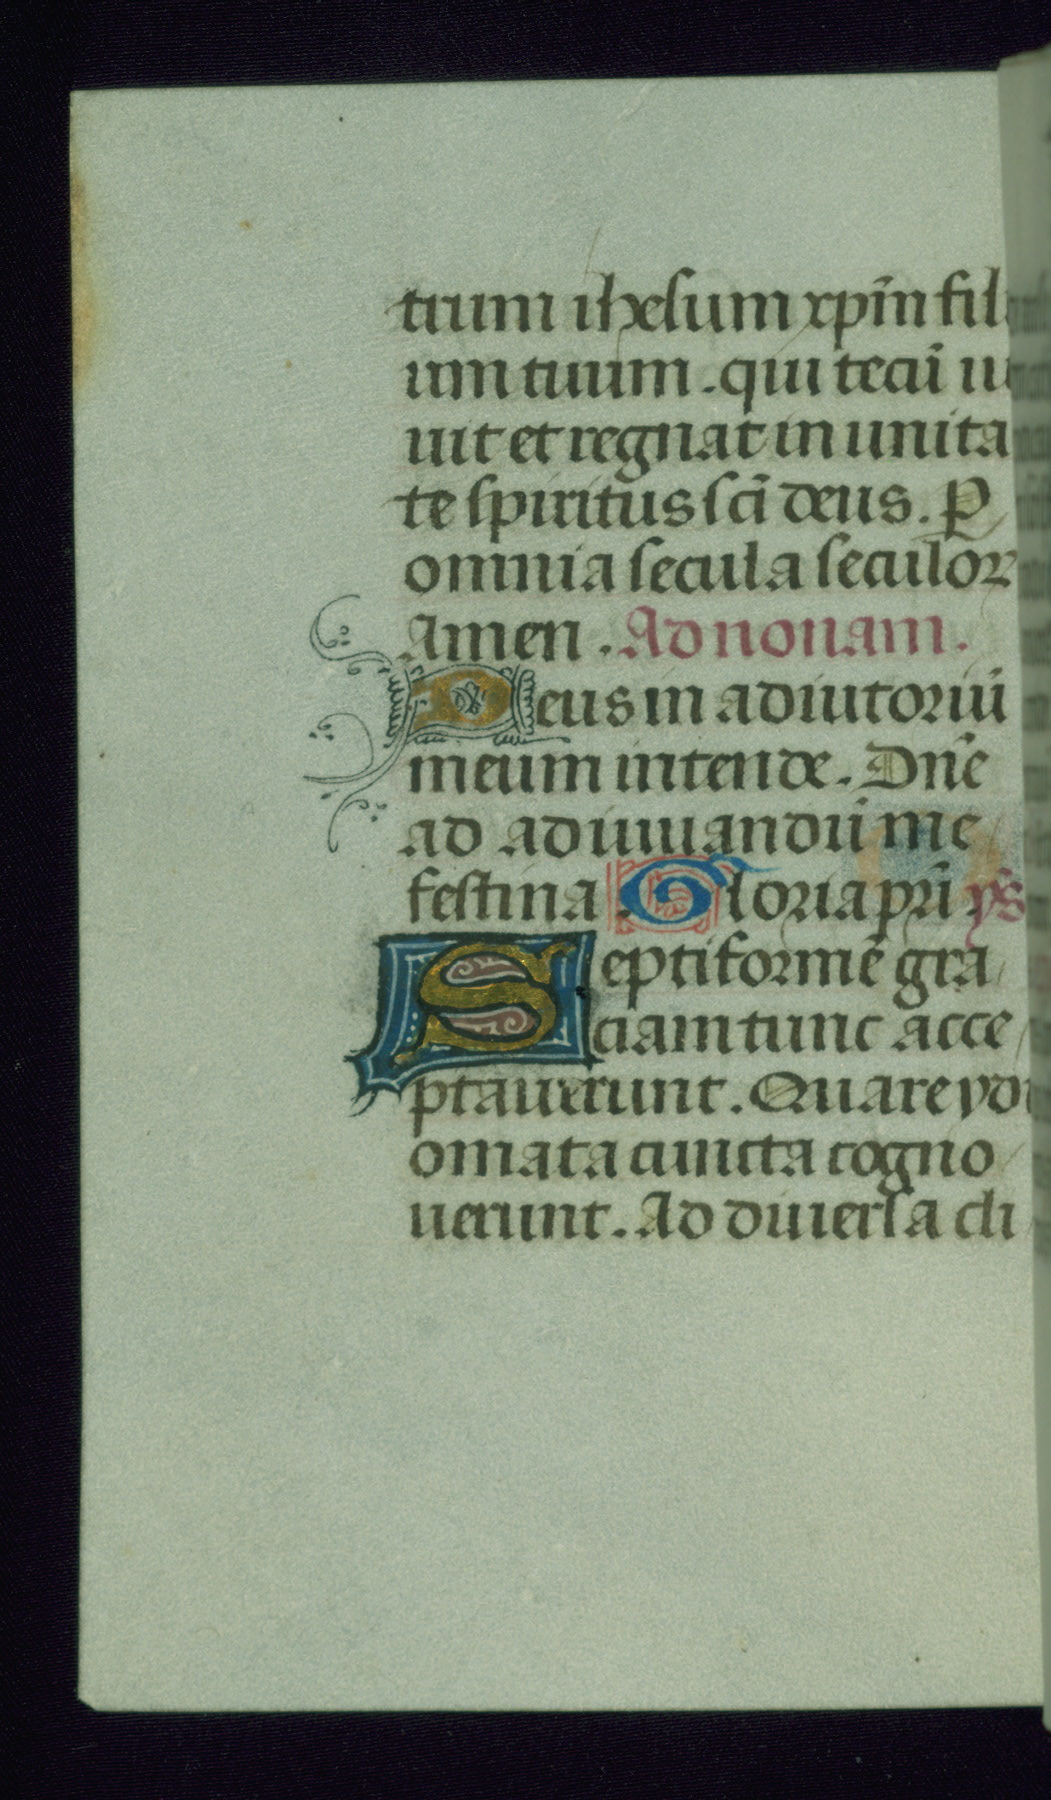 trum ihesum xp̄m fil
ium tuum. qui tecū ui
uit et regnat in unita
te spiritus sc̄i deus. P̲
omnia secula seculor
Amen. Ad nonam.
Deus in adiutoriū
meum intende. Dn̄e
ad adiuuandū me
festina. Gloria pr̄i. ys
Septiformē gra
ciam tunc acce
ptauerunt. Quare ydi
omata cuncta cogno
uerunt. Ad diuersa cli